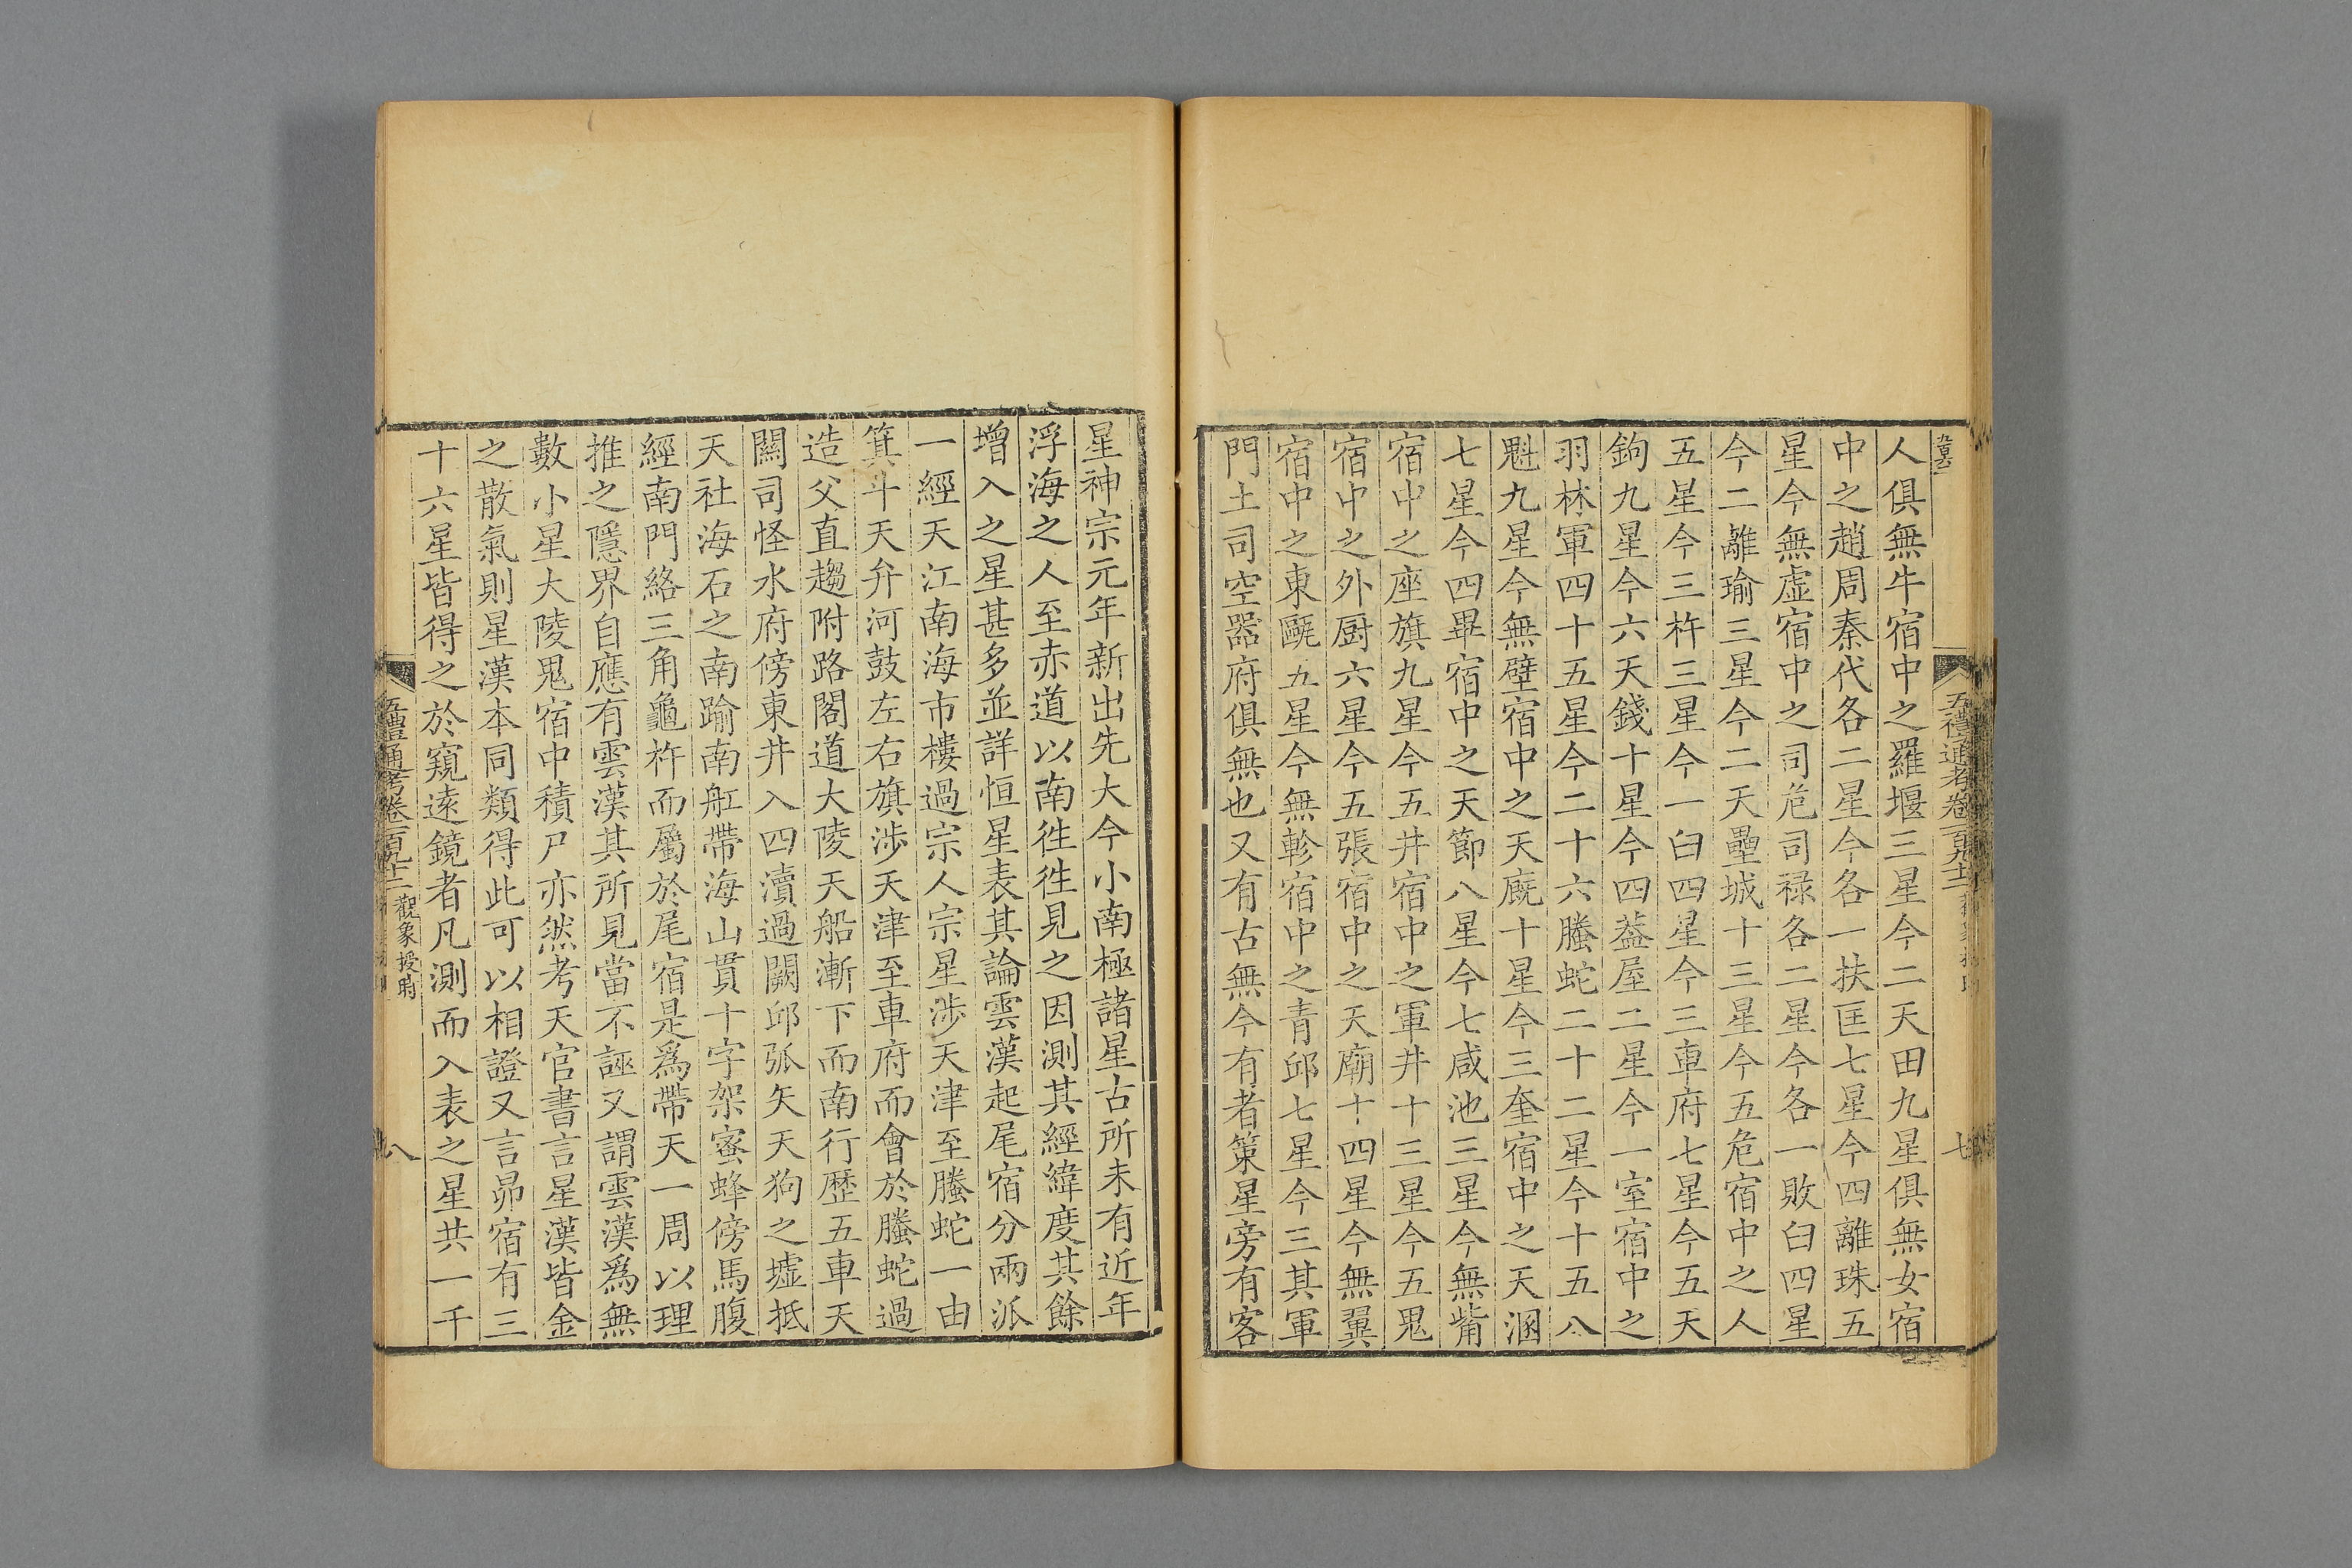 人俱無牛宿中之羅堰三星今二天田九星俱無女宿
中之趙周秦代各二星今各一扶匡七星今四離珠五
星今無虛宿中之司危司祿各二星今各一敗臼四星
今二離瑜三星今二天壘城十三星今五危宿中之人
五星今三杵三星今一臼四星今三車府七星今五天
鉤九星今六天錢十星今四蓋屋二星今一室宿中之
羽林軍四十五星今二十六螣蛇二十二星今十五八
魁九星今無壁宿中之天廐十星今三奎宿中之天溷
七星今四畢宿中之天節八星今七咸池三星今無觜
宿中之座旗九星今五井宿中之軍井十三星今五鬼
宿中之外厨六星今五張宿中之天廟十四星今無翼
宿中之東甌五星今無軫宿中之青邱七星今三其軍
門土司空器府俱無也又有古無今有者策星旁有客
五禮通考卷一百九十二
七
星神宗元年新出先大今小南極諸星古所未有近年
浮海之人至赤道以南徃徃見之因測其經緯度其餘
增入之星甚多並詳恒星表其論雲漢起尾宿分兩派
一經天江南海市樓過宗人宗星涉天津至螣蛇一由
箕斗天弁河鼓左右旗涉天津至車府而會於螣蛇過
造父直趨附路閣道大陵天船漸下而南行歷五車天
關司怪水府傍東井入四瀆過闕邱弧矢天狗之墟抵
天社海石之南踰南船帶海山貫十字架蜜蜂傍馬腹
經南門絡三角龜杵而屬於尾宿是爲帶天一周以理
推之隱界自應有雲漢其所見當不誣又謂雲漢爲無
數小星大陵鬼宿中積尸亦然考天官書言星漢皆金
之散氣則星漢本同類得此可以相證又言昴宿有三
十六星皆得之於窺遠鏡者凡測而入表之星共一千
五禮通考卷一百九十二 觀象授時
八